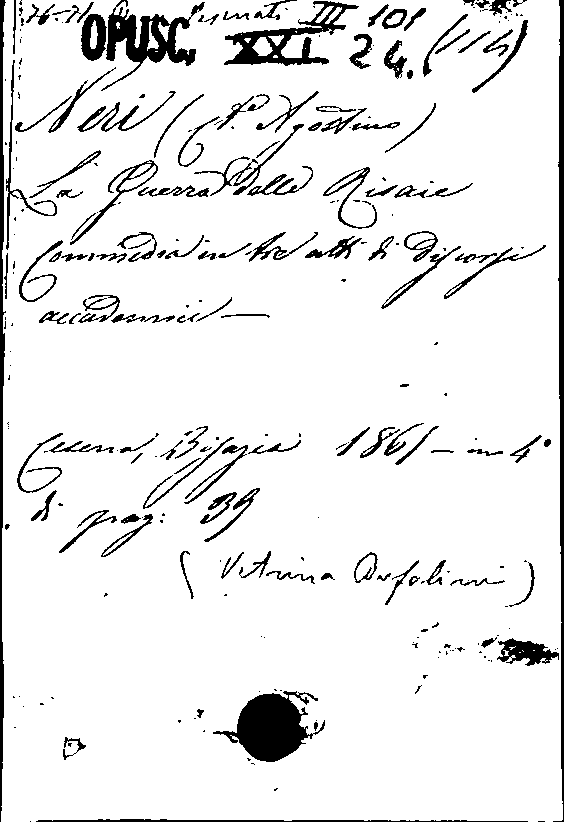 III 101
OPUSC. XXI 24. (114)
Neri (P.e Agostino)
La Guerra delle Risaie
Commedia in tre atti di discorsi
accademici —
Cesena, Biasini 1861 — in 4°
di pag: 39
(Vetrina)